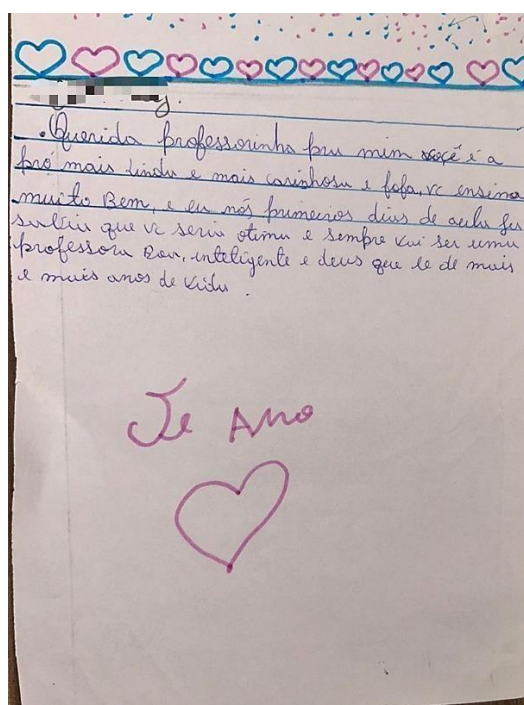 .Querida professorinha pru mim voçê é a
pró mais linda e mais carinhosa e fofa, vc ensina
muito Bem, e eu nós primeiros dias de aula ja
sabia que vc seria otima e sempre vai ser uma
professora Boa, inteligente e deus que le de mais
e mais anos de vida.
Te Amo